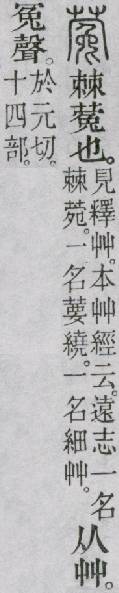 蒬棘蒬也。
見釋艸。本艸經云。遠志一名
棘菀。一名葽繞。一名細艸。
从艸。
冤聲。
於元切。
十四部。